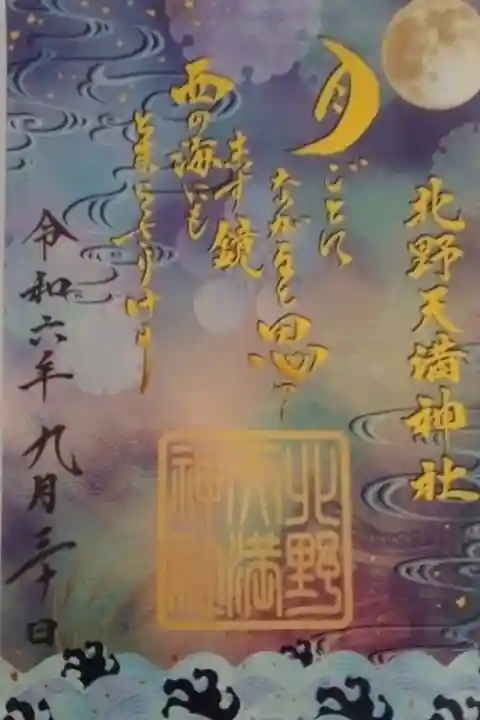 北野天満神社
月ごとに
ながると思ひし
ます鏡
西の海にも
とまらざりけり
令和六年 九月三十日
北野
天満
神社